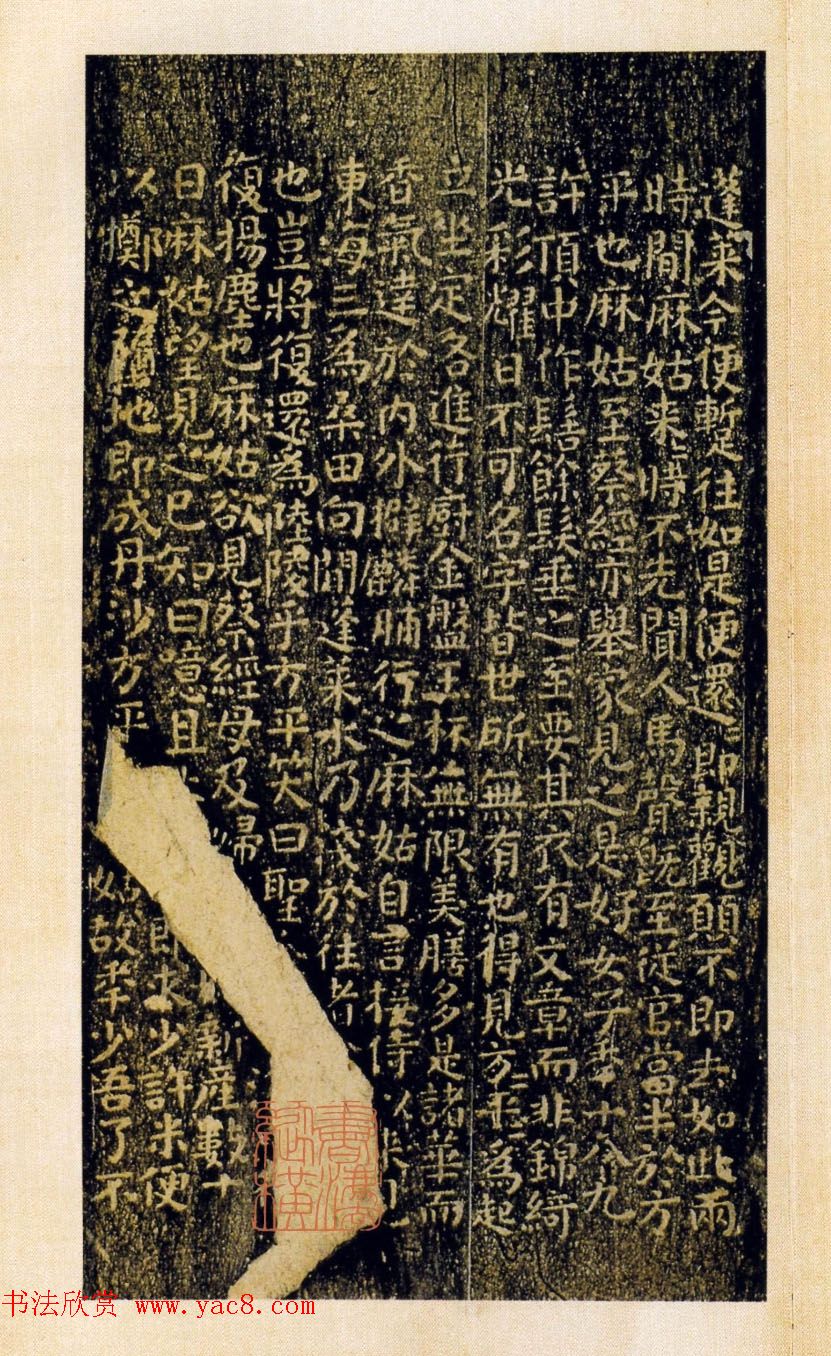 蓬萊今便蹔往如是便還還即親覲願不即去如此兩
時間麻姑来来時不先聞人馬聲既至從官當半於方
平也麻姑至蔡經亦舉家見之是好女子年十八九
許頂中作髻餘髮垂之至要其衣有文章而非錦綺
光彩耀日不可名字皆世所無有也得見方平方平為起
立坐定各進行廚金盤玉杯無限美膳多是諸華而
香氣達於内外擗麟脯行之麻姑自言接侍以来
東海三為桑田向間蓬莱水乃淺於往者
也豈將復還為陸陵乎方平笑曰聖
復揚塵也麻姑欲見蔡經母及婦新產數十
日麻姑望見之已知曰噫且即求少許米便
以擲之墮地即成丹沙方平姑故年少吾了不
書法欣赏 www.yac8.com